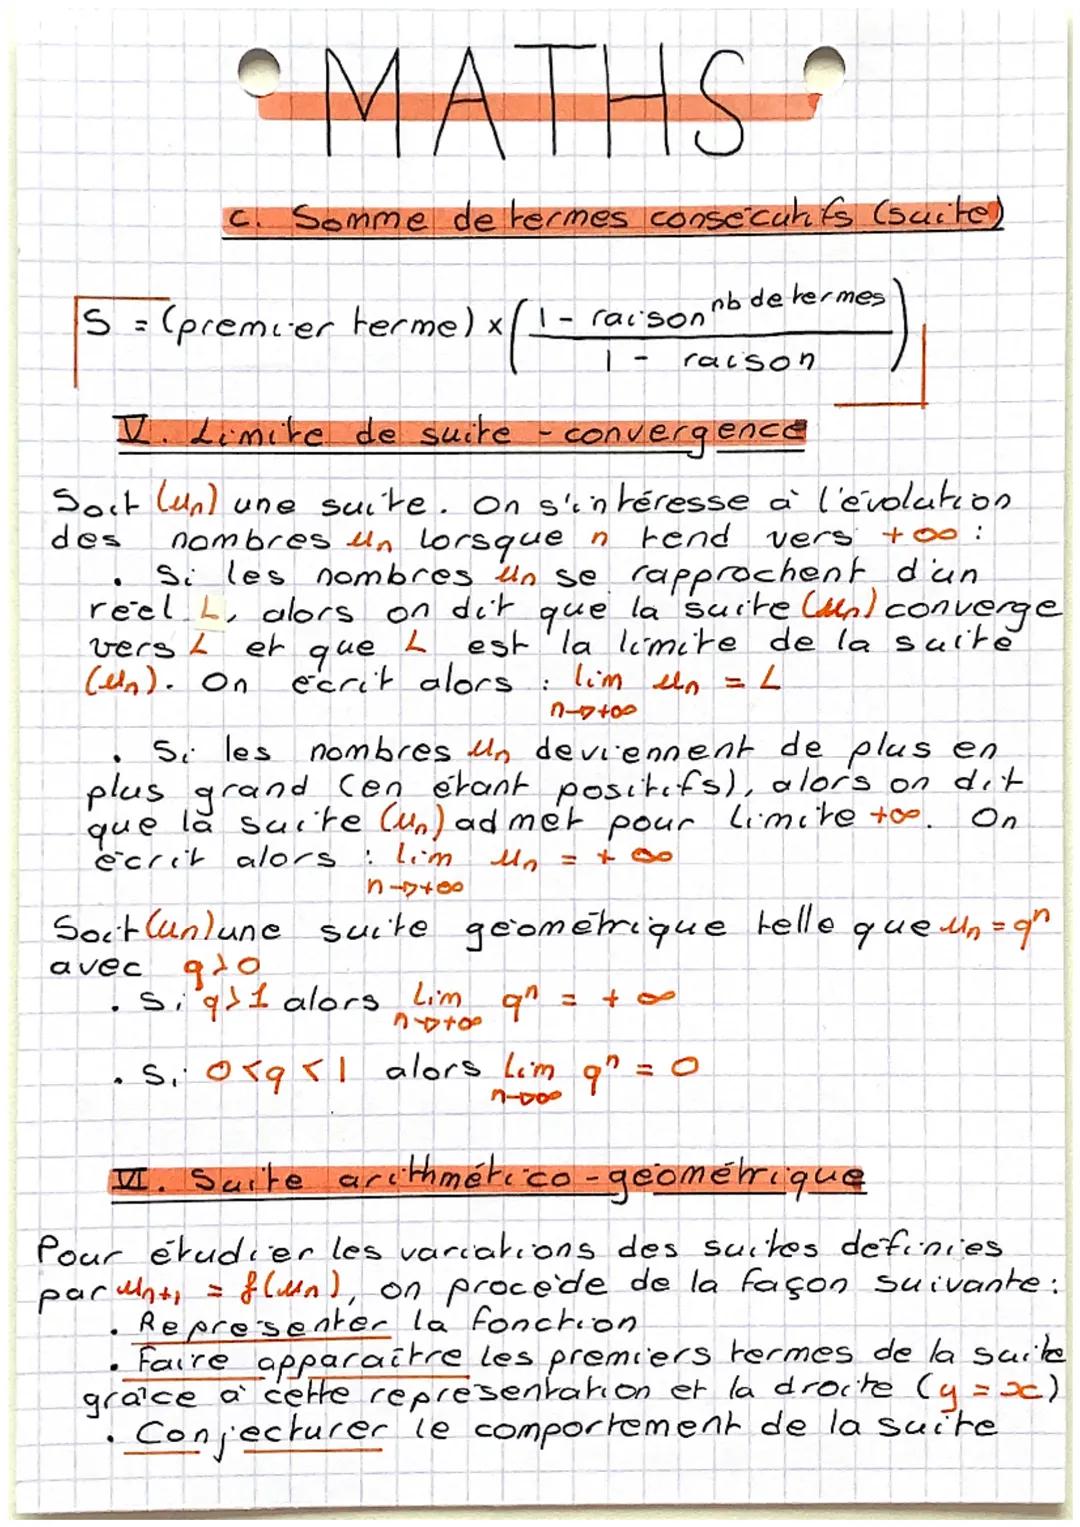 MATHS
c. Somme de termes consécutifs (suite)
S = (premier terme) × ( (1 - raison^nb de termes) / (1 - raison) )
V. Limite de suite - convergence
Soit (un) une suite. On s'intéresse à l'évolution
des nombres un lorsque n tend vers +∞ :
. Si les nombres un se rapprochent d'un
réel L, alors on dit que la suite (un) converge
vers L et que L est la limite de la suite
(un). On écrit alors : lim un = L
n→+∞
. Si les nombres un deviennent de plus en
plus grand (en étant positifs), alors on dit
que la suite (un) admet pour limite +∞. On
écrit alors : lim un = +∞
n→+∞
Soit (un) une suite géométrique telle que un = q^n
avec q>0
. Si q>1 alors lim q^n = +∞
n→+∞
. Si 0<q<1 alors lim q^n = 0
n→∞
VI. Suite arithmético-géométrique
Pour étudier les variations des suites définies
par un+1 = f(un), on procède de la façon suivante :
. Représenter la fonction
. Faire apparaître les premiers termes de la suite
grâce à cette représentation et la droite (y = x)
. Conjecturer le comportement de la suite